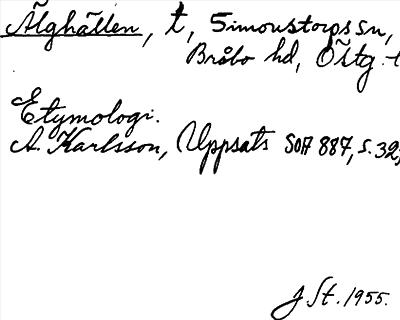 Älghällen, t, Simonstorps sn,
Bråbo hd, Östg.
Etymologi.
A. Karlsson, Uppsats SOA 887, s. 32,
J St. 1955.